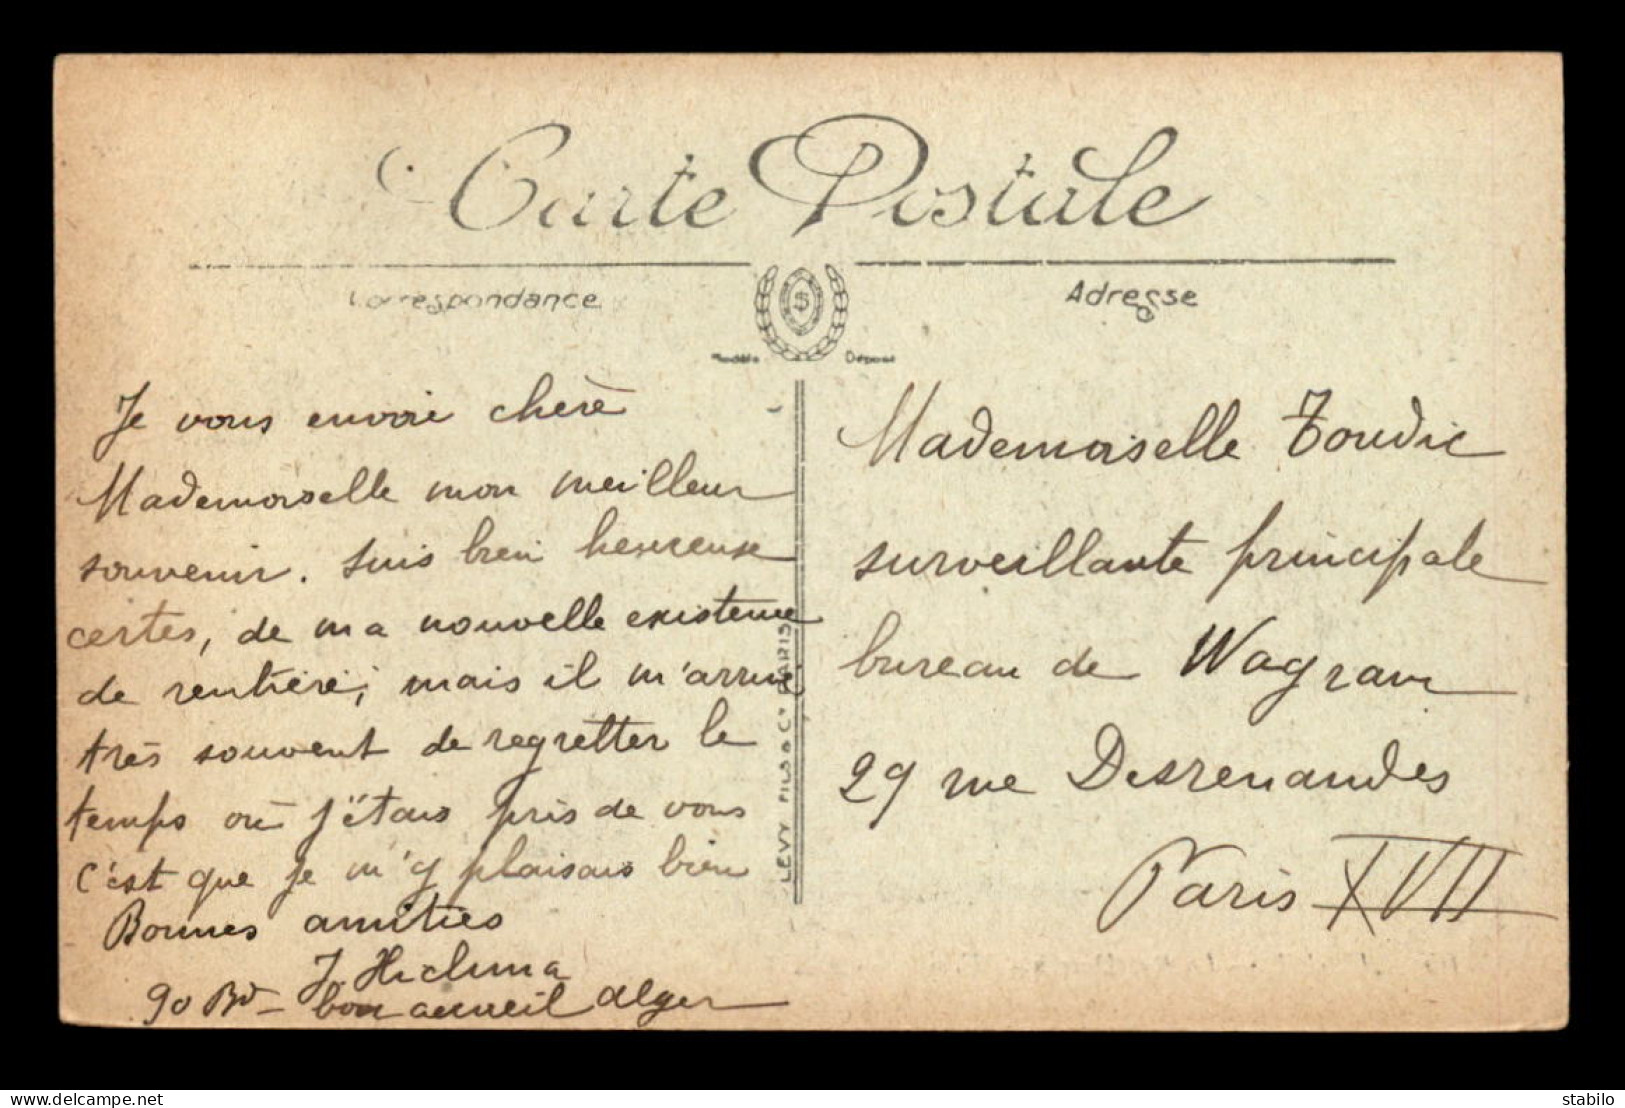 Carte Postale
Correspondance
Adresse
Modèle Déposé
Je vous envoie chère
Mademoiselle mon meilleur
souvenir. Suis bien heureuse
certes, de ma nouvelle existence
de rentière, mais il m'arrive
très souvent de regretter le
temps où j'étais près de vous
c'est que je m'y plaisais bien
Bonnes amitiés
J.
90 Bd - bon accueil Alger
LEVY FILS & Cie PARIS
Mademoiselle Toudic
surveillante principale
bureau de Wagram
29 rue Desrenaudes
Paris XVII
delcampe.net
stabilo